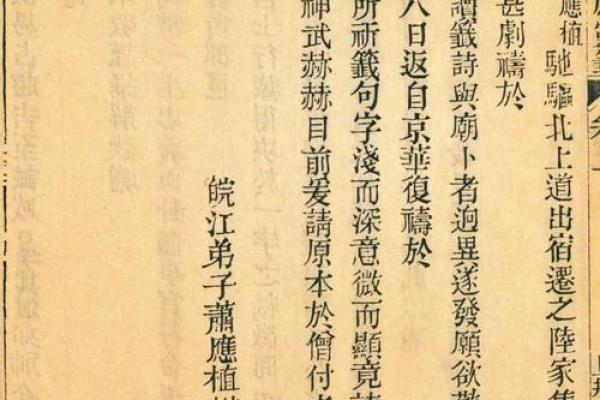 應植馳驅北上道出宿遷之陸家
甚劇禱於
讀籤詩與廟卜者迥異遂發願欲
八日返自京華復禱於
所祈籤句字淺而深意微而顯竟
神武赫赫目前爰請原本於僧付
皖江弟子蕭應植